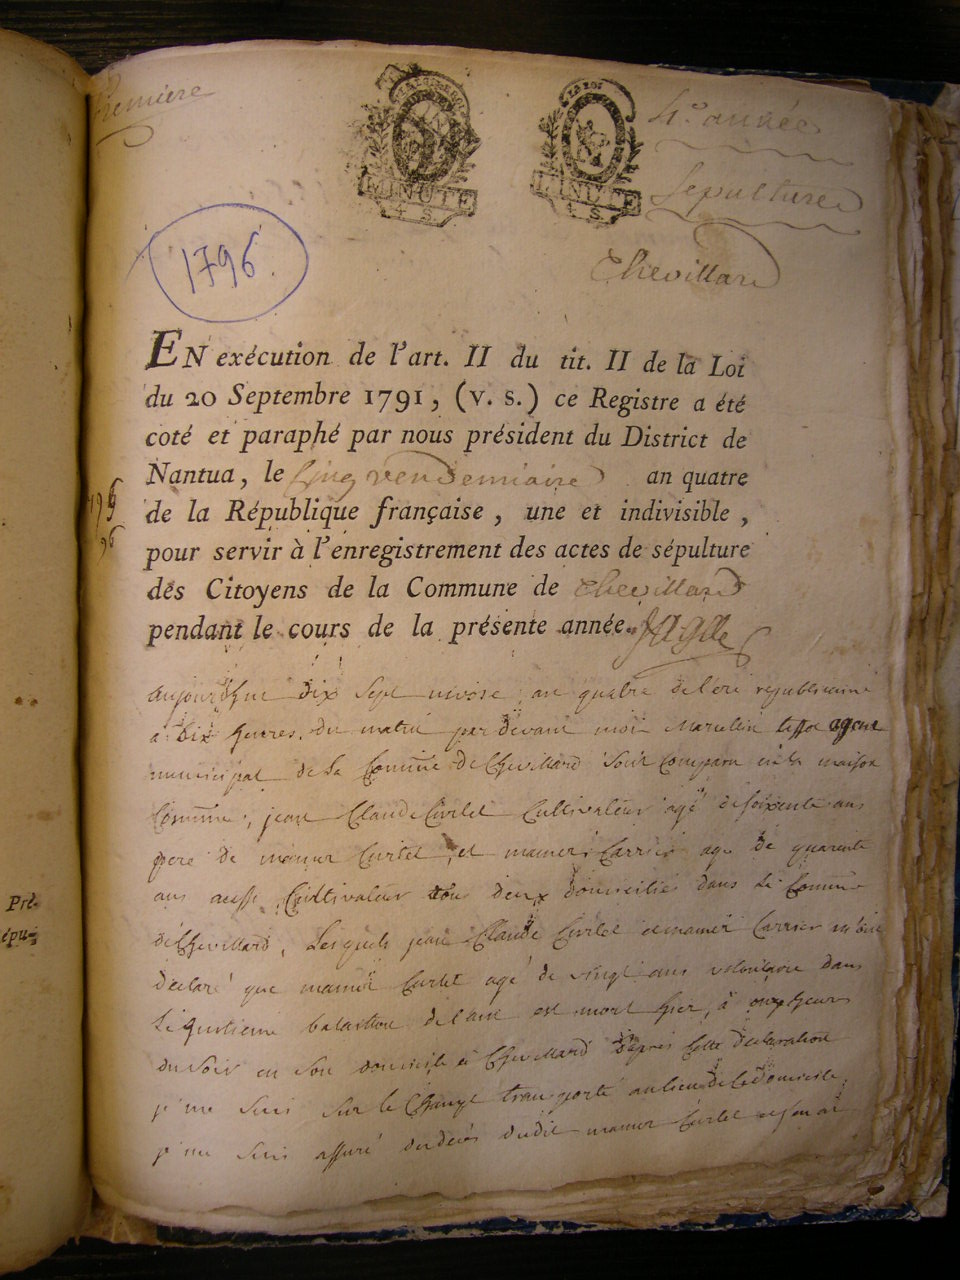 Premiere
LA LOI
MINUTE
4. S.
LA LOI
MINUTE
4. S.
4e. année
Sepulture
Chevillard
1796.
EN exécution de l'art. II du tit. II de la Loi
du 20 Septembre 1791, (v. s.) ce Registre a été
coté et paraphé par nous président du District de
Nantua, le Cinq vendemiaire an quatre
de la République française, une et indivisible,
pour servir à l'enregistrement des actes de sépulture
des Citoyens de la Commune de Chevillard
pendant le cours de la présente année.
1795
96
aujourdhui dix sept nivose an quatre de l'ere republicaine
a dix heures du matin par devant moi Marcelin agent
municipal de la Comune de Chevillard sont comparu en la maison
Comune, jean Claude Curlet Cultivateur agé de soixente ans
pere de mamer Curlet et mamer Carrier age de quarente
ans aussi Cultivateur tous deux domiciliés dans la Comune
de Chevillard, Lesquels jean Claude Curlet et mamer Carrier m'ont
declaré que mamer Curlet agé de vingt ans volontaire dans
le bataillon de l'ain est mort hier, à onze heures
du soir en son domicile à Chevillard d'apres cette declaration
j'me suis sur le Champ transporté au lieu de ce domicile,
j'me suis assuré du deces dudit mamer Curlet
Pré-
épu-